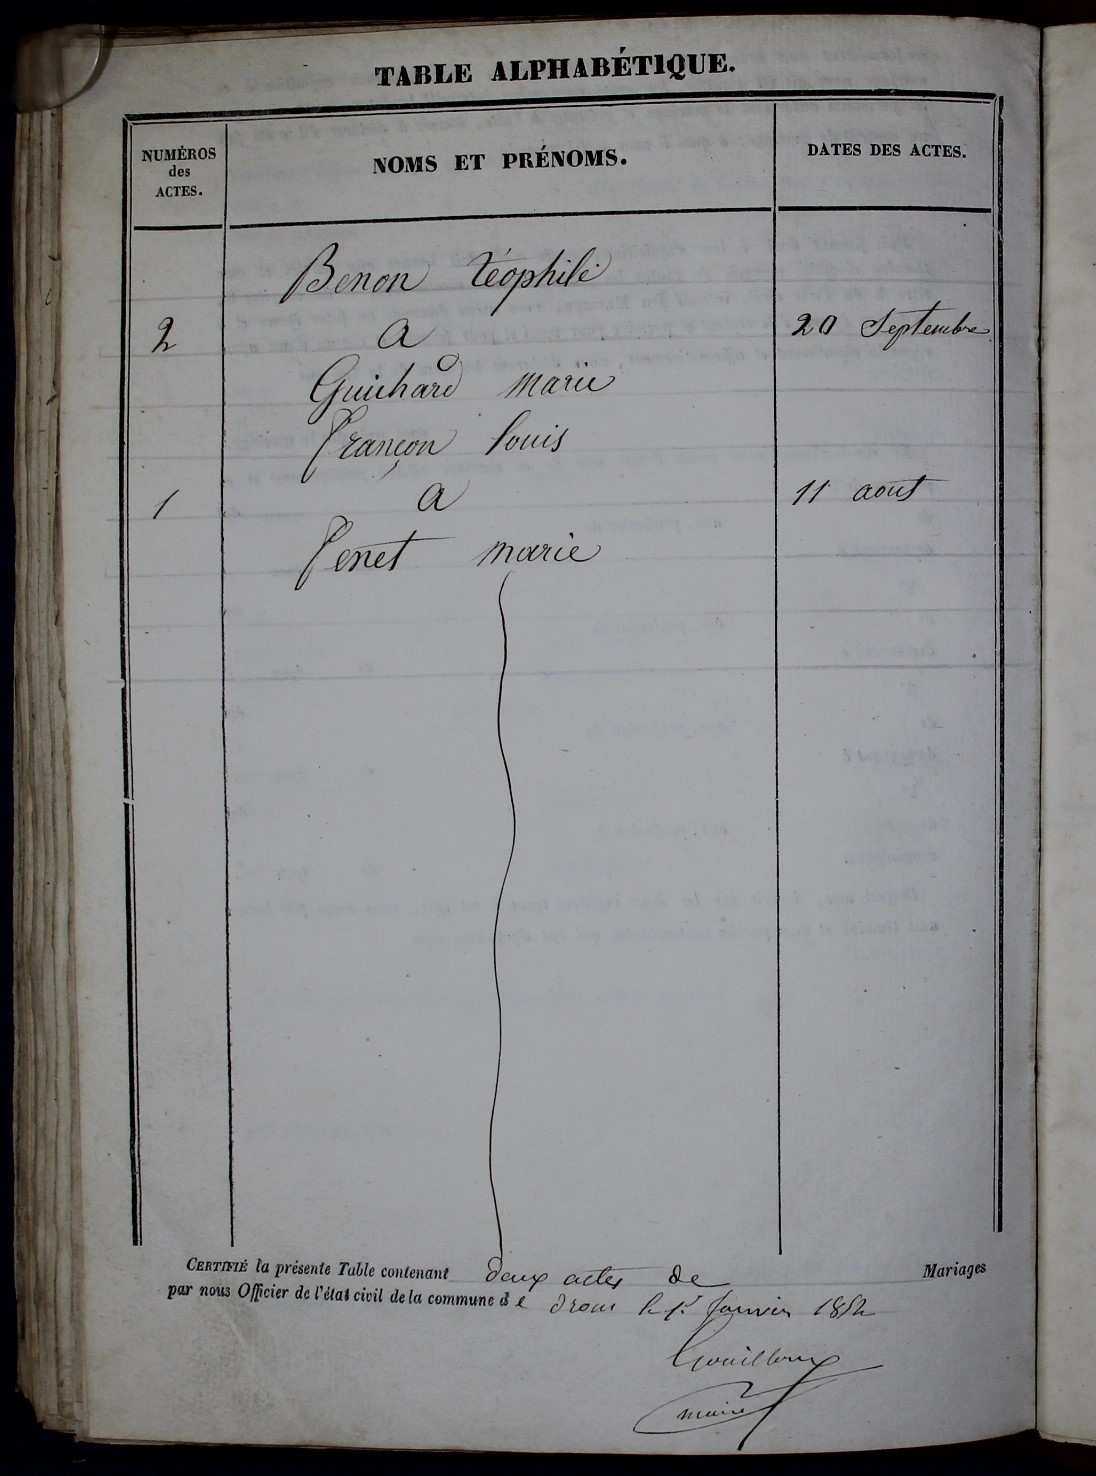 TABLE ALPHABÉTIQUE.
NUMÉROS
des
ACTES.
NOMS ET PRÉNOMS.
DATES DES ACTES.
Benon Téophile
2 a 20 Septembre
Guichard marie
Françon Louis
1 a 11 aout
Fenet marie
CERTIFIÉ la présente Table contenant deux actes de Mariages
par nous Officier de l'état civil de la commune de drom le 1er Janvier
maire